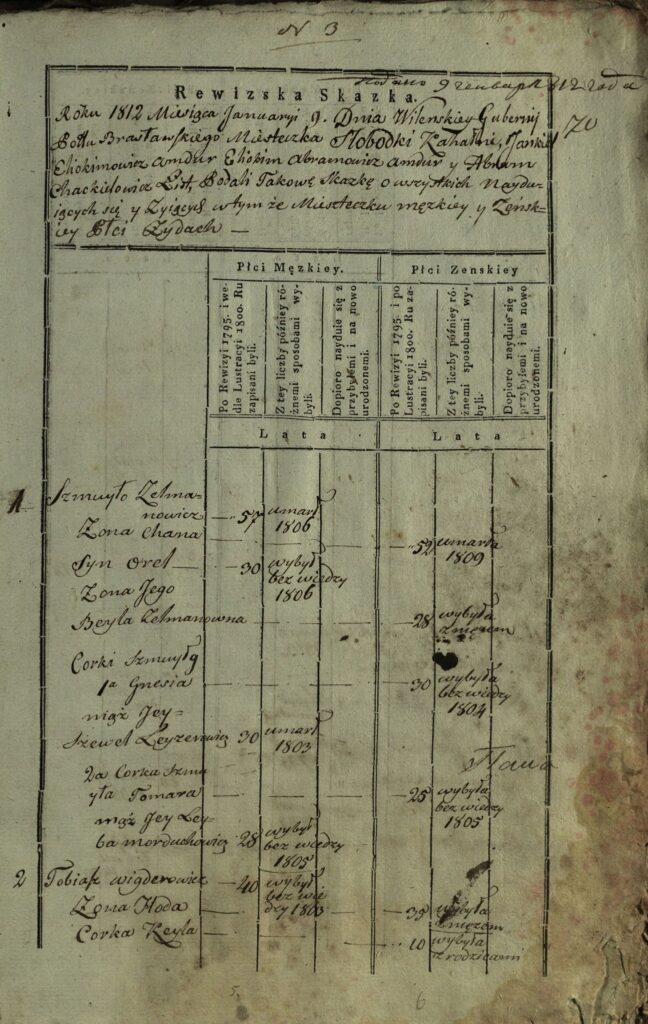 N 3
подано 9 генваря 1812 года
Rewizska Skazka.
70
Roku 1812 Miesiąca Januaryi 9. Dnia Wilenskiey Gubernij
Pottu Brasławskiego Miesteczka Słobodki Kahalni, Jankiel
Eliokimowicz Amdur Eliokim Abramowicz Amdur y Abram
Chackielowicz List, Podali Takowę Skazkę o wszystkich Naydu-
iących się y Zyiących w tym że Miasteczku męzkiey y Zeńsk-
iey Płci Zydach —
Płci Męzkiey. Płci Zenskiey
Po Rewizyi 1795. i we-
dle Lustracyi 1800. Ru
zapisani byli.
Z tey liczby poźniey ró-
żnemi sposobami wy-
byli.
Dopioro nayduie się z
przybyłemi i na nowo
urodzonemi.
Po Rewizyi 1795. i po
Lustracyi 1800. Ru za-
pisani byli.
Z tey liczby poźniey ró-
żnemi sposobami wy-
byli.
Dopioro nayduie się z
przybyłemi i na nowo
urodzonemi.
Lata Lata
1 Szmuyło Zelma-
nowicz 57 umarł
1806
Zona Chana 52 umarła
1809
Syn Orel 30 wybył
bez wiedzy
1806
Zona Jego
Beyla Zelmanowna 28 wybyła
z męzem
Corki Szmuyły
1a Gnesia 30 wybyła
bez wiedzy
1804
mąż Jey
Szewel Leyzerowicz 30 umarł
1803
2a Corka Szmu
yła Tomara 25 wybyła
bez wiedzy
1805
mąż Jey Ley-
ba Morduchowicz 28 wybył
bez wiedzy
1805
2 Tobiasz Wigderowicz 40 wybył
bez wie
dzy 1803
Zona Hoda 39 wybyła
z męzem
Corka Keyla 10 wybyła
z rodzicami
5. 6